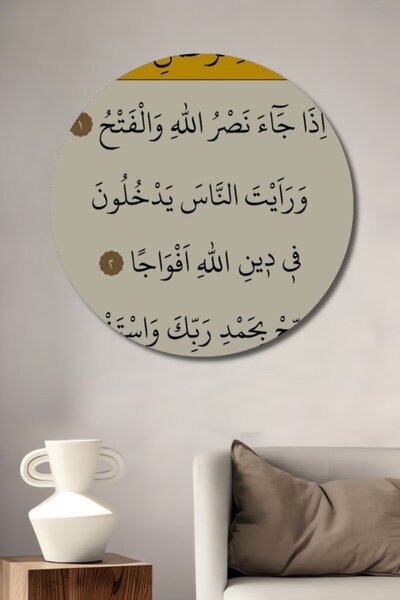 اِذَا جَٓاءَ نَصْرُ اللّٰهِ وَالْفَتْحُ ١
وَرَاَيْتَ النَّاسَ يَدْخُلُونَ
ف۪ي د۪ينِ اللّٰهِ اَفْوَاجًا ٢
بِحَمْدِ رَبِّكَ